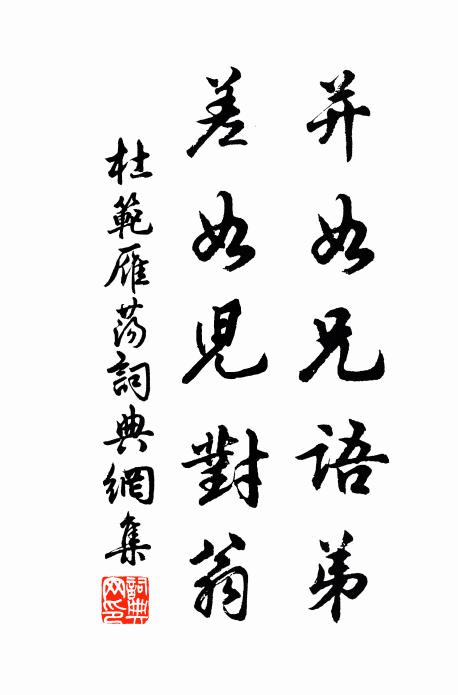 并如兄語弟
差如兒對翁
杜範雁蕩詞典網集
詞典網印